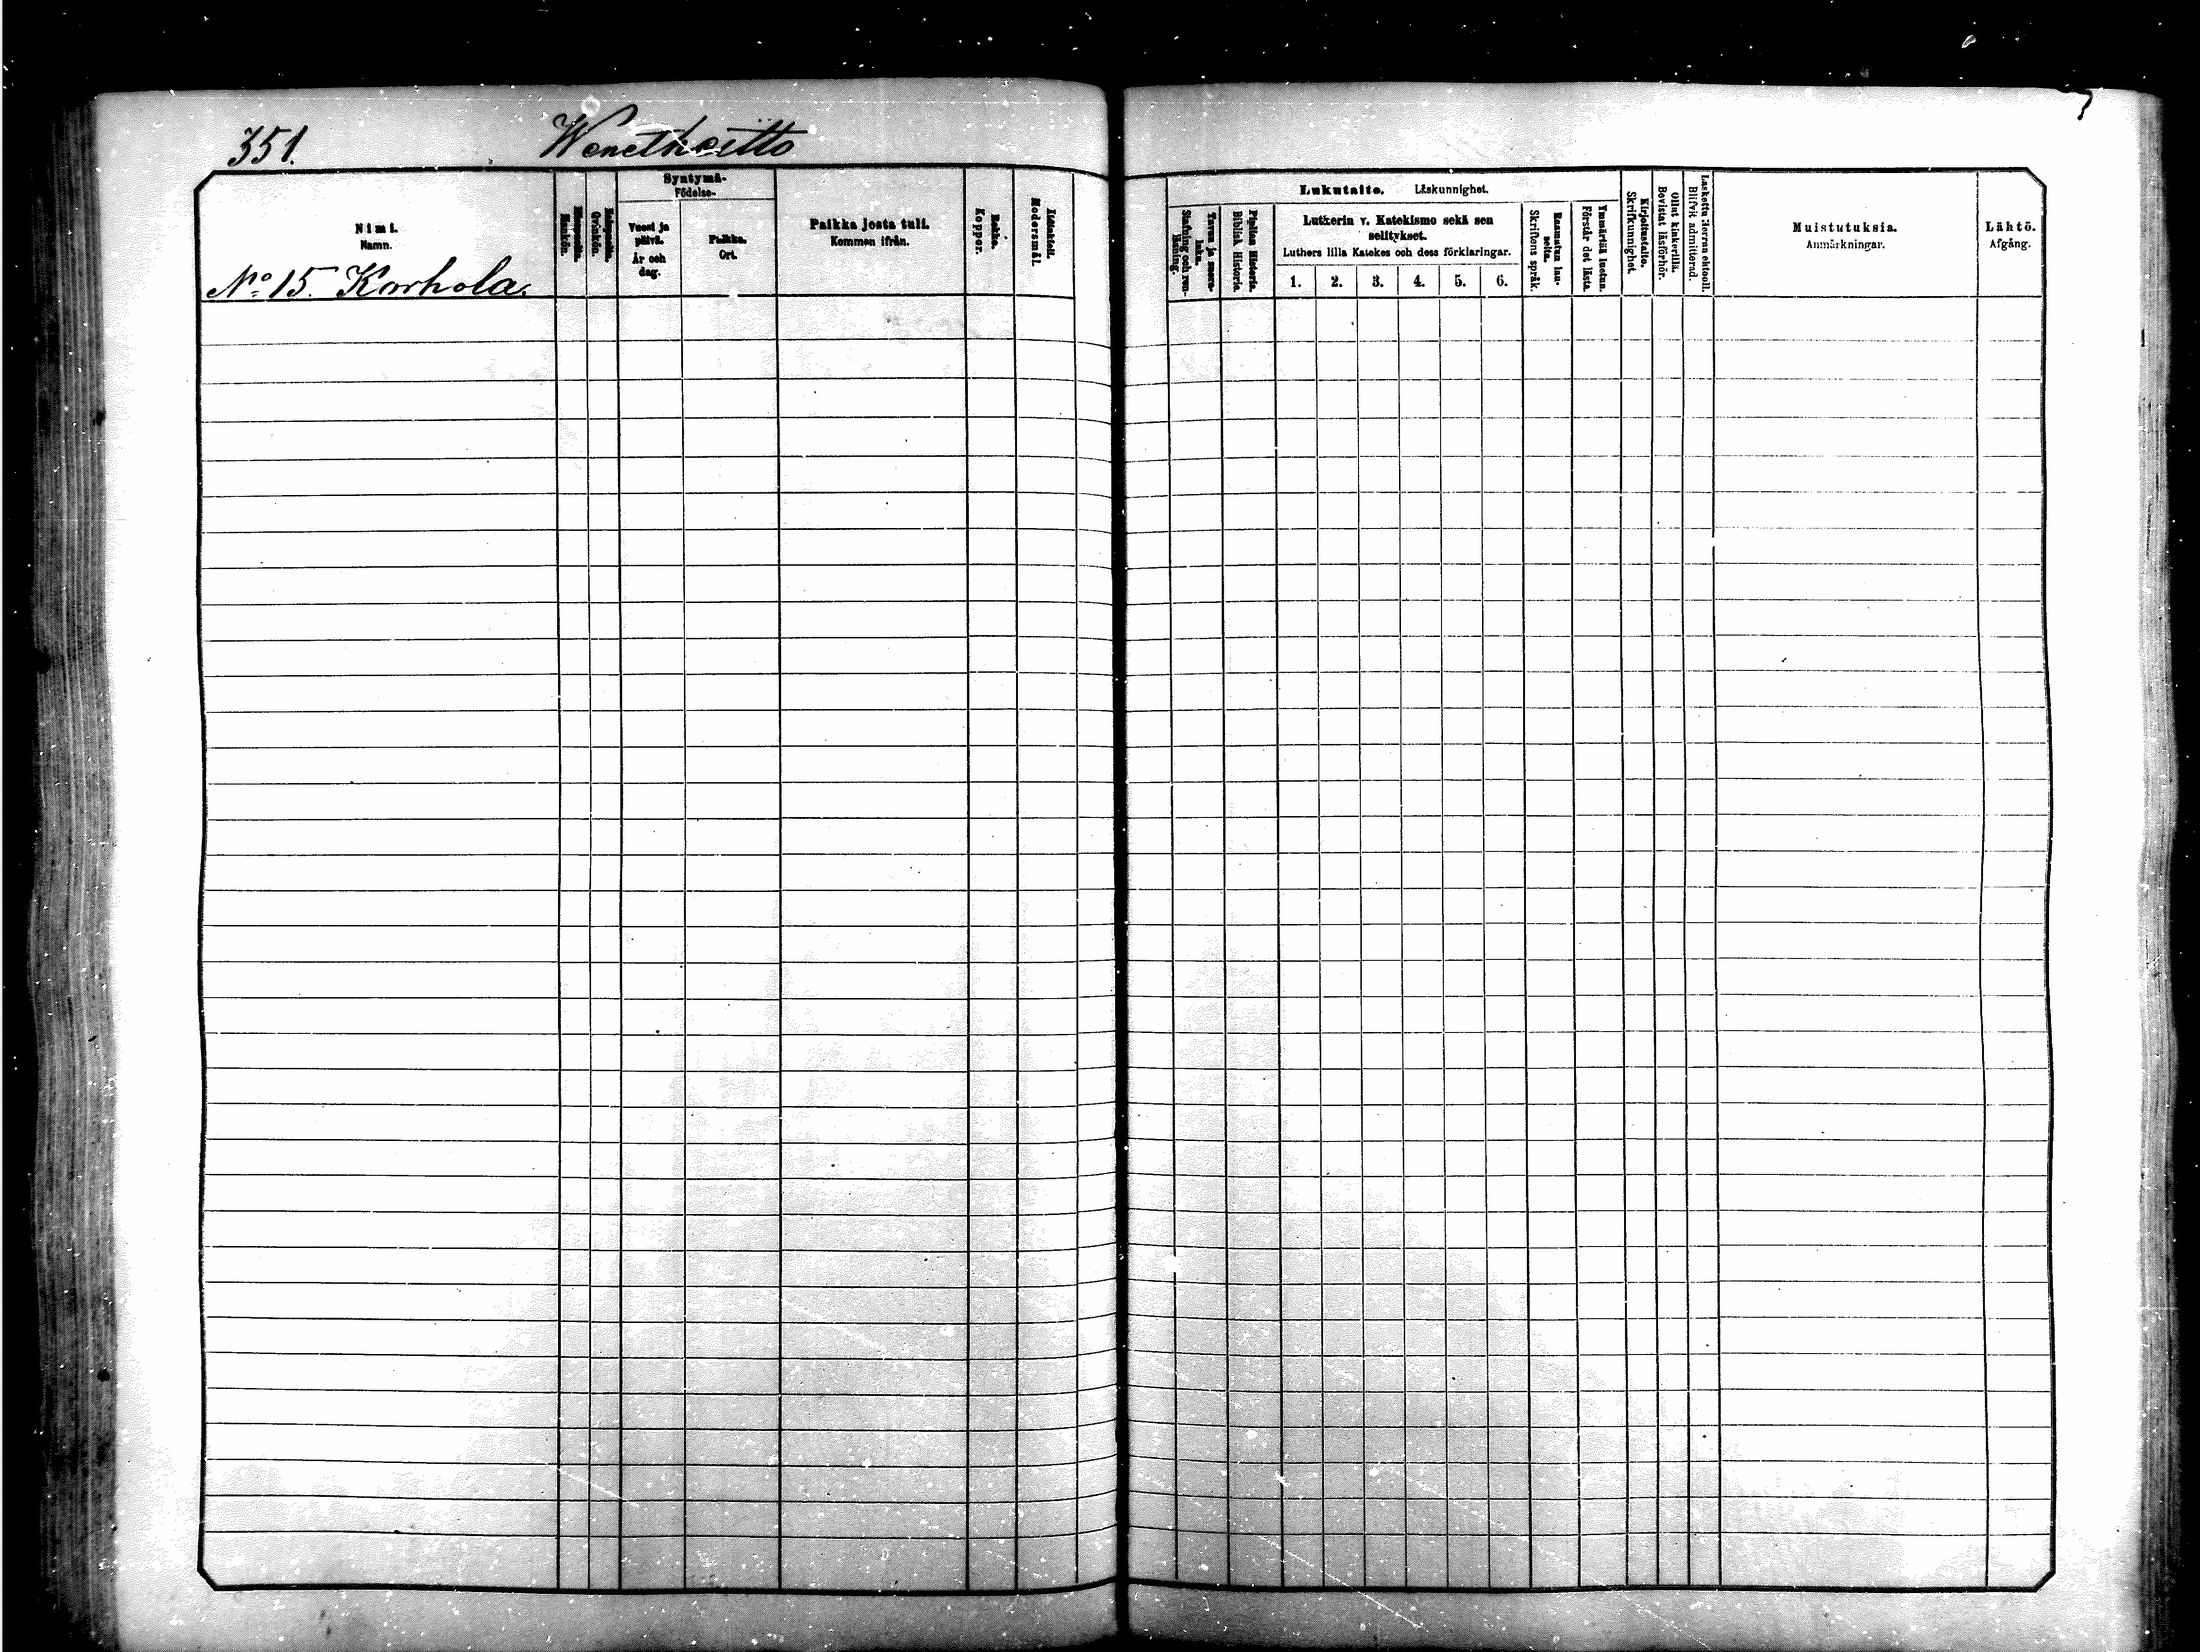 351. Wenetheitto
Nimi.
Namn.
No 15. Korhola.
Miespuolia.
Mankön.
Vaimopuolia.
Qvinkön.
Syntymä-
Födelse-
Vuosi ja
päivä.
År och
dag.
Paikka.
Ort.
Paikka josta tuli.
Kommen ifrån.
Rokko.
Koppor.
Äidinkieli.
Modersmål.
Lukutaito. Läskunnighet.
Stafning och ren-
läsning.
Piplian Historia.
Biblisk Historia.
Lutherin v. Katekismo sekä sen
selitykset.
Luthers lilla Katekes och dess förklaringar.
1. 2. 3. 4. 5. 6.
Raamatun lau-
seita.
Skriftens språk.
Ymmärtää luetun.
Förstår det lästa.
Kirjoitustaito.
Skrifkunnighet.
Ollut kinkerillä.
Bevistat läsförhör.
Laskettu Herran ehtooll.
Blifvit admitterad.
Muistutuksia.
Anmärkningar.
Lähtö.
Afgång.